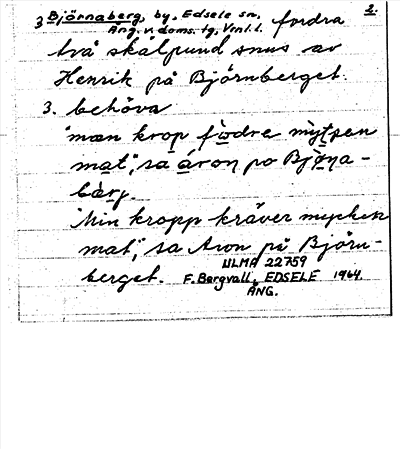 3 Björnaberg, by, Edsele sn, 2.
Ång. v. doms. tg, Vnrl. l. fordra
två skålpund snus av
Henrik på Björnberget.
3. behöva
"mæn krop fòdre mỳtʃen
mat", sa áron po Bjòna-
bærj.
"Min kropp kräver mycken
mat", sa Aron på Björn-
berget.
ULMA 22759
F. Bergvall, EDSELE 1964.
ÅNG.